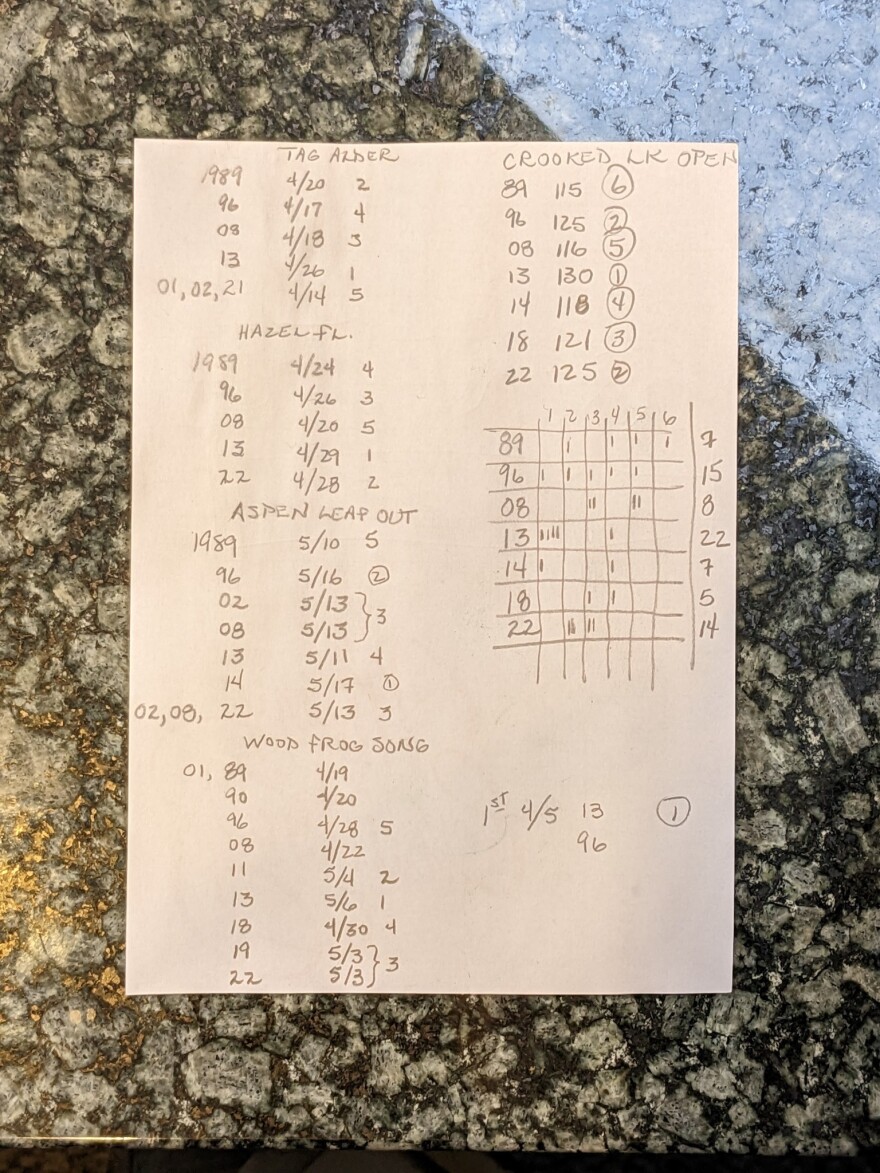 TAG ALDER
1989 4/20 2
96 4/17 4
08 4/18 3
13 4/26 1
01, 02, 21 4/14 5
HAZEL FL.
1989 4/24 4
96 4/26 3
08 4/20 5
13 4/29 1
22 4/28 2
ASPEN LEAF OUT
1989 5/10 5
96 5/16 2
02 5/13 } 3
08 5/13
13 5/11 4
14 5/17 1
02, 08, 22 5/13 3
WOOD FROG SONG
01, 89 4/19
90 4/20
96 4/28 5
08 4/22
11 5/4 2
13 5/6 1
18 4/30 4
19 5/3 } 3
22 5/3
CROOKED LK OPEN
89 115 6
96 125 2
08 116 5
13 130 1
14 118 4
18 121 3
22 125 2
1 2 3 4 5 6
89 | | | | 7
96 | | | | | 15
08 || || 8
13 |||| | 22
14 | | 7
18 | | 5
22 || || 14
1ST 4/5 13 1
96